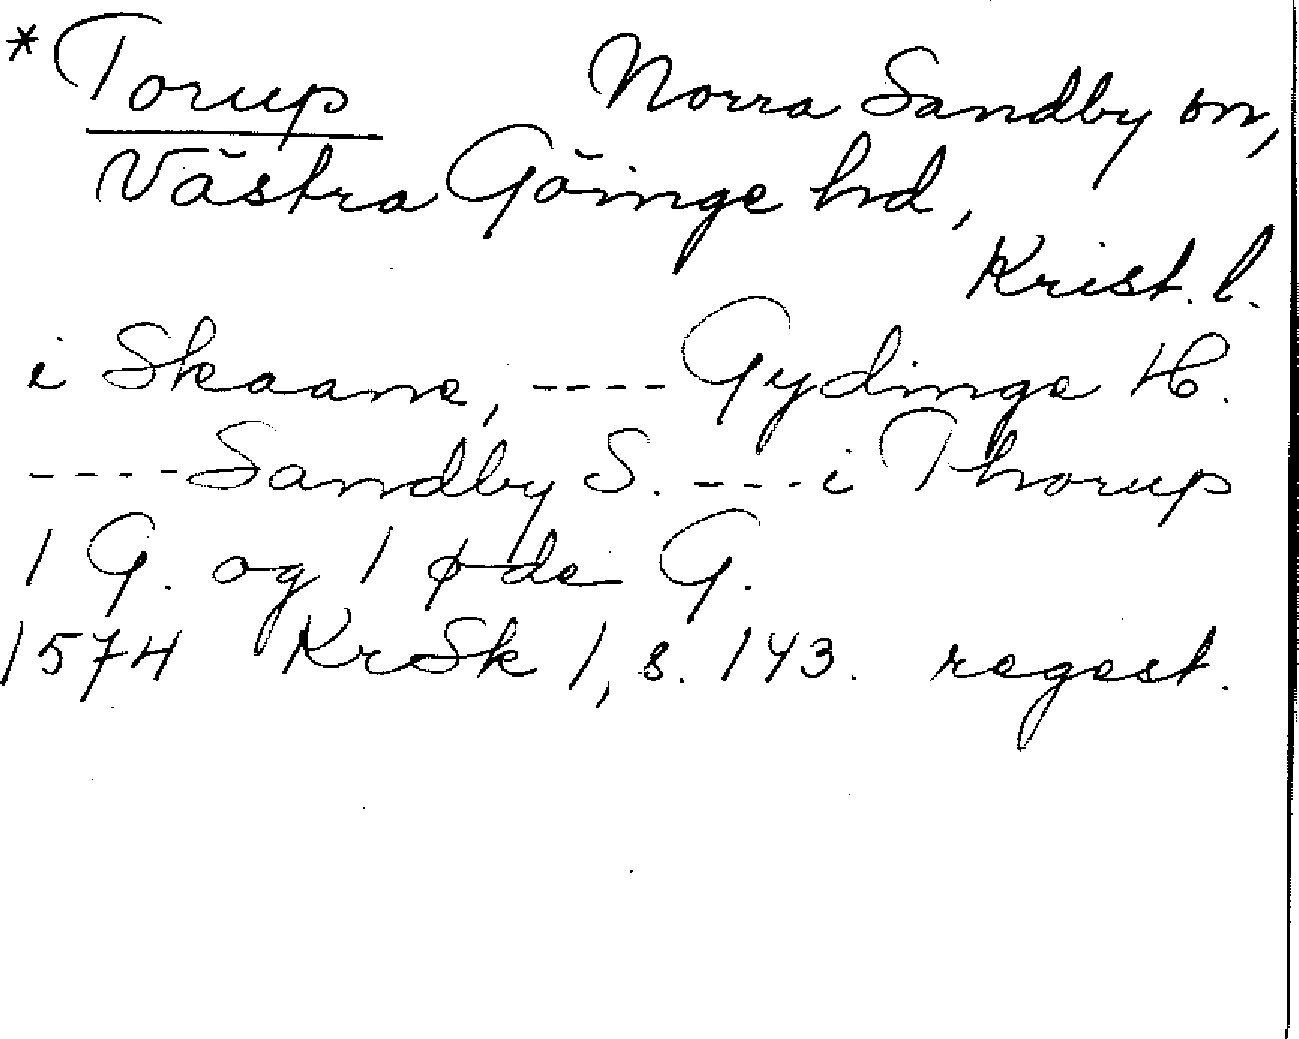 *Torup Norra Sandby sn,
Västra Göinge hd,
Krist. l.
i Skaane, ---- Gydinge H.
---- Sandby S. ---- i Thorup
1 G. og 1 øde G.
1574 KrSk 1, s. 143. regest.